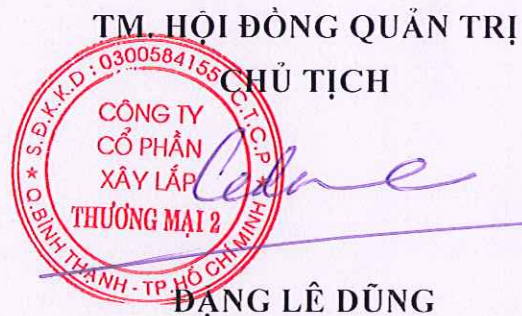 TM. HỘI ĐỒNG QUẢN TRỊ
CHỦ TỊCH
S.Đ.K.K.D : 0300584155 C.T.C.P
CÔNG TY
CỔ PHẦN
XÂY LẮP
THƯƠNG MẠI 2
Q.BÌNH THẠNH - TP.HỒ CHÍ MINH
ĐẶNG LÊ DŨNG